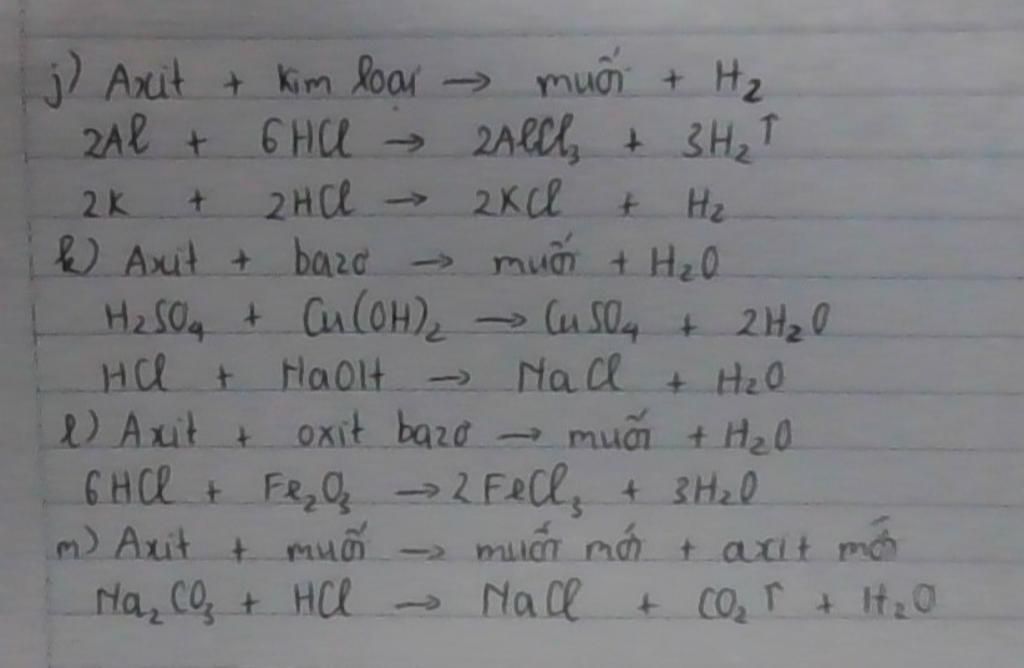 j) Axit + kim loại → muối + H₂
2Al + 6HCl → 2AlCl₃ + 3H₂↑
2K + 2HCl → 2KCl + H₂
k) Axit + bazơ → muối + H₂O
H₂SO₄ + Cu(OH)₂ → CuSO₄ + 2H₂O
HCl + NaOH → NaCl + H₂O
l) Axit + oxit bazơ → muối + H₂O
6HCl + Fe₂O₃ → 2FeCl₃ + 3H₂O
m) Axit + muối → muối mới + axit mới
Na₂CO₃ + HCl → NaCl + CO₂↑ + H₂O